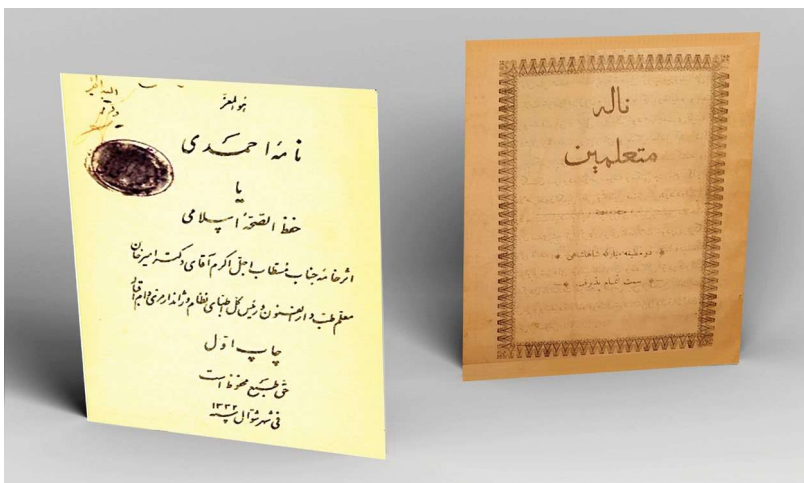 هو المعز
نامهٔ احمدی
یا
حفظ الصحهٔ اسلامی
اثر خامه جناب مستطاب اجل اکرم آقای دکتر امیرخان
معلم طب دارالفنون و رئیس کل اطبای نظام و ژاندارمری دام اقباله
چاپ اول
حق طبع محفوظ است
فی شهر شوال سنه ۱۳۳۲
ناله
متعلمین
در مطبعه مبارکه شاهنشاهی
سمت اتمام پذیرفت